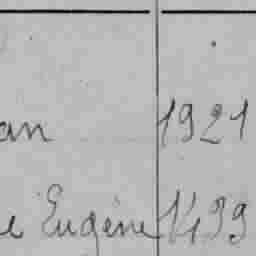 an 1921
e Eugène 1499